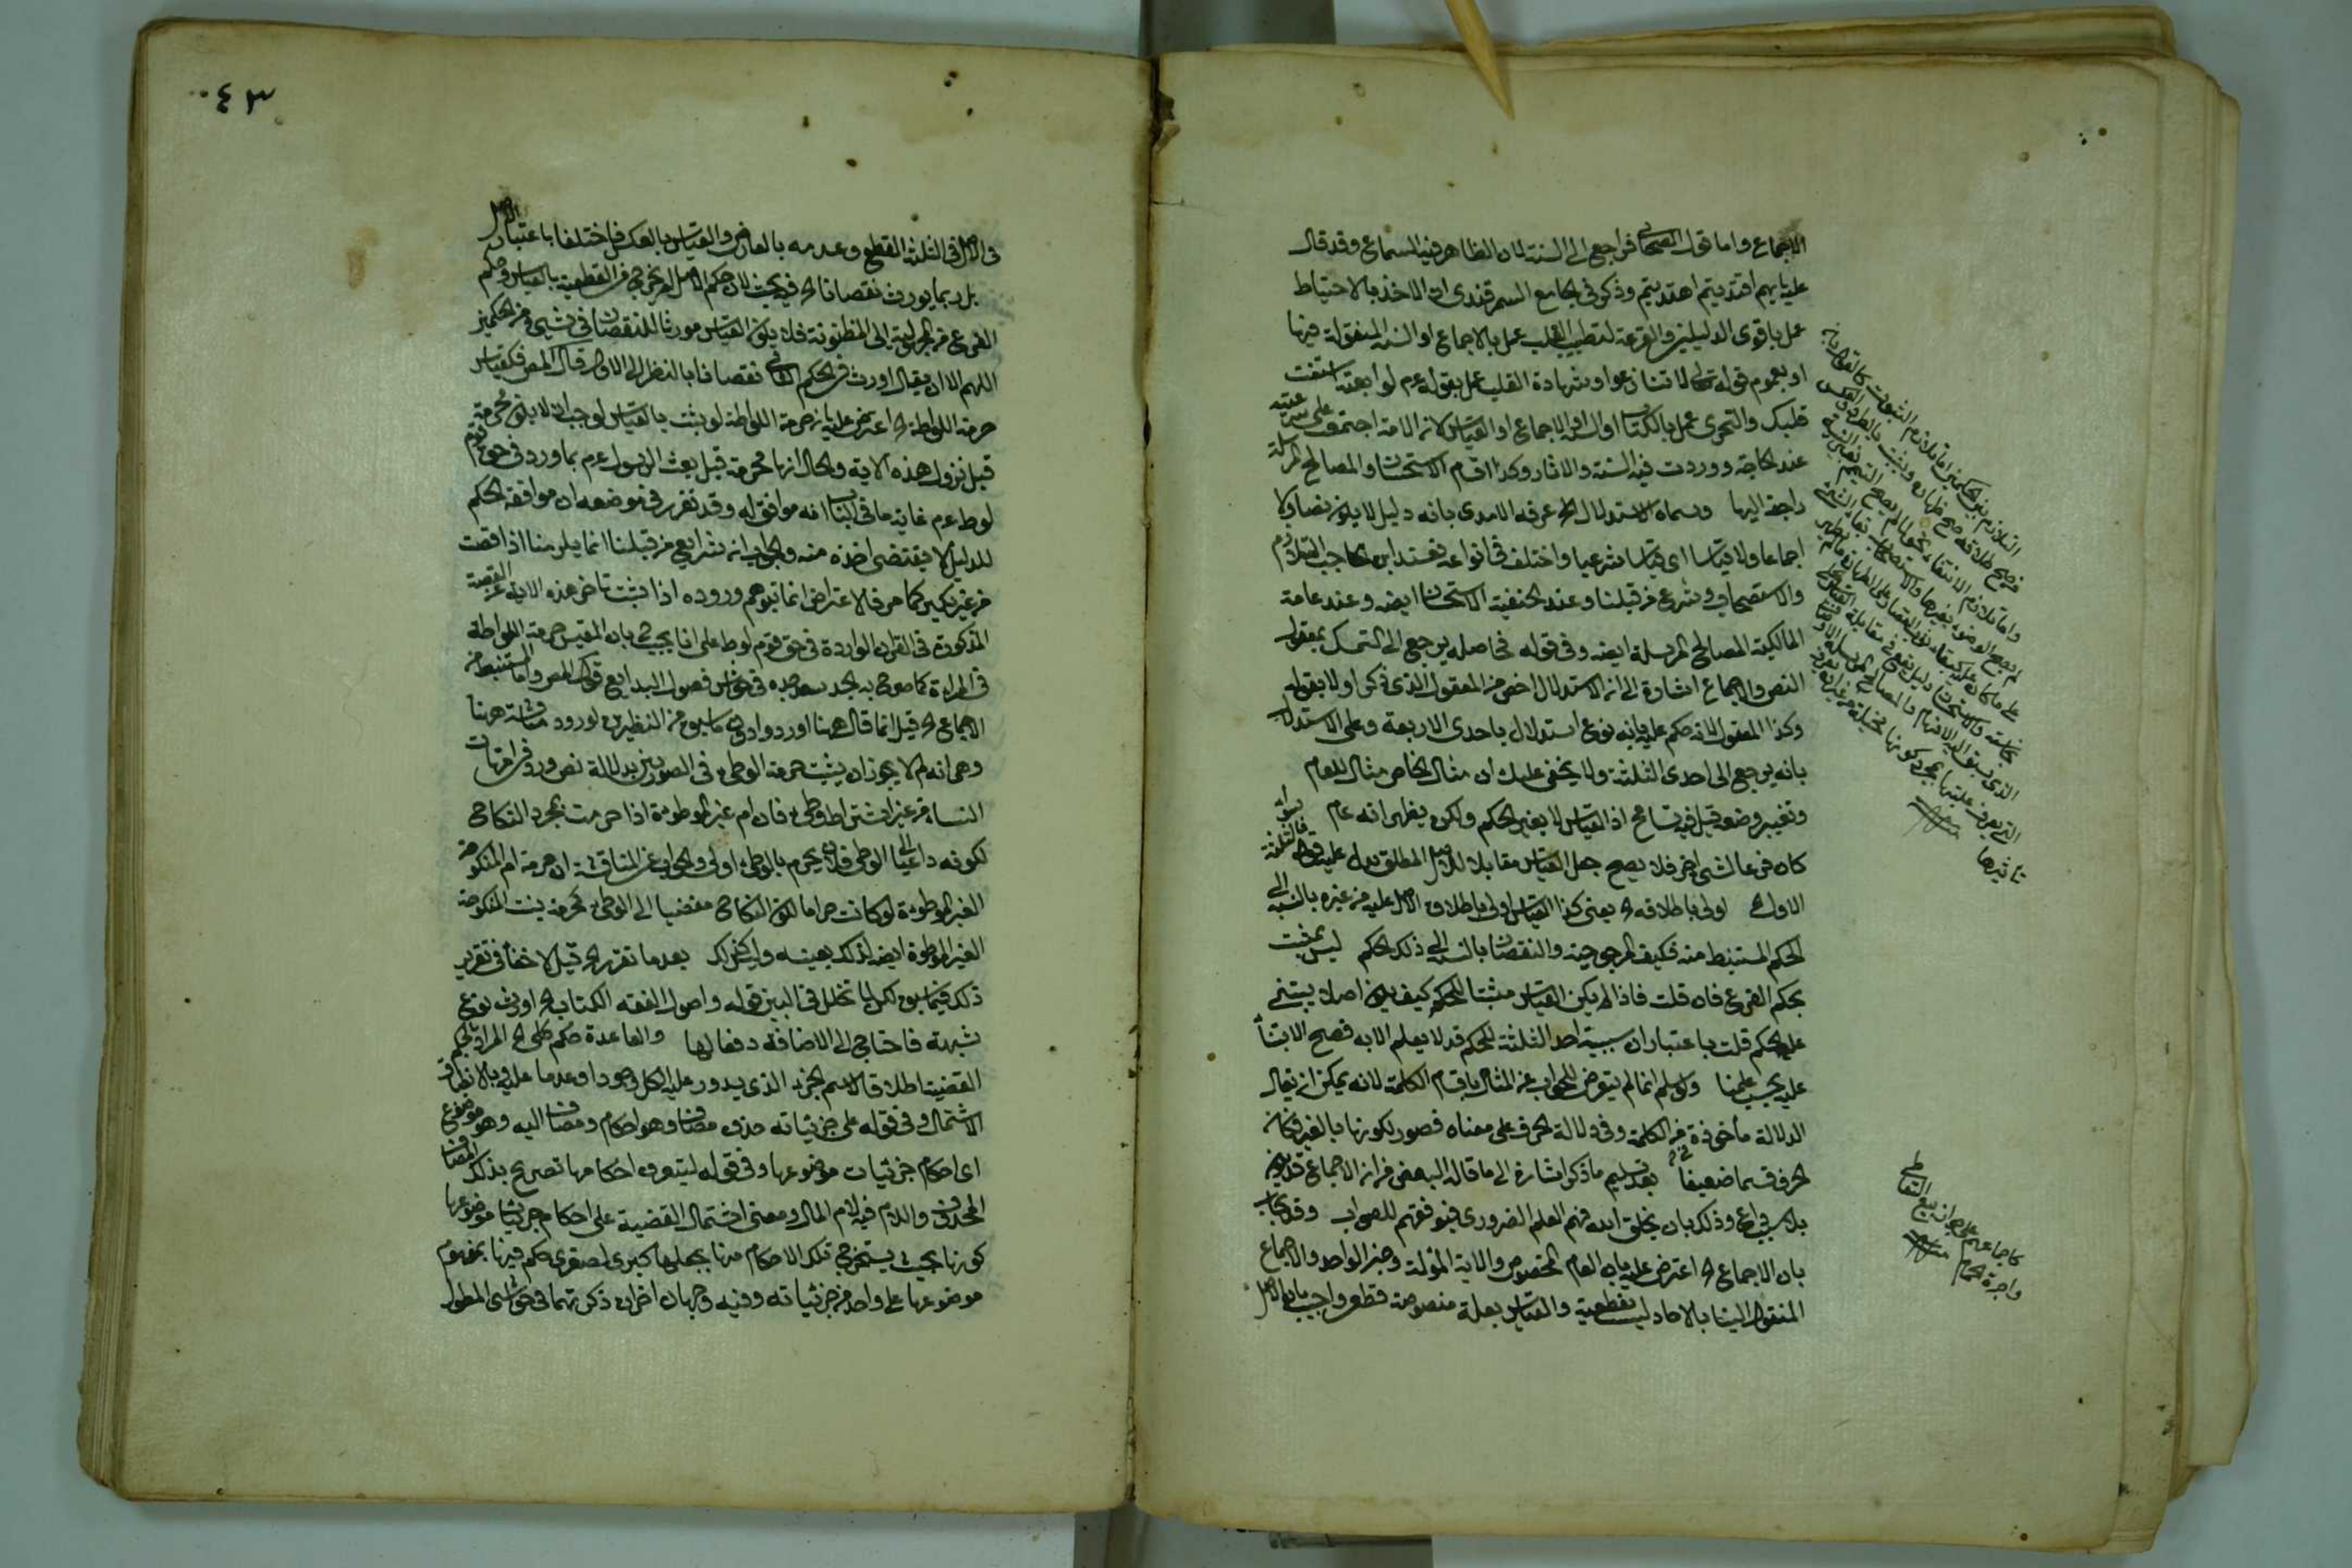 الاجماع واما قول الصحابى فراجع الى السنة لان الظاهر فيه السماع وقد قال
عم بايهم اقتديتم اهتديتم وذكر فى جامع السمرقندى ان الاخذ بالاحتياط
عمل باقوى الدليلين والقرعة لتطييب القلب عمل بالاجماع او السنة المنقولة فيها
او بعموم قوله تعالى ولا تنازعوا وشهادة القلب عمل بقوله عم لوابصة استفت
قلبك والتحرى عمل بالكتاب او السنة او الاجماع او القياس لانه الامة اجتمعت على شرعيته
عند الحاجة ووردت فيه السنة والاثار وكذا اقسام الاستحسان والمصالح المرسلة
راجعة اليها وسماه الاستدلال الخ عرفه الامدى بانه دليل لا يكون نصا ولا
اجماعا ولا قياسا اى قياسا شرعيا واختلف فى انواعه فعند ابن الحاجب التلازم
والاستصحاب وشرع من قبلنا وعند الحنفية الاستحسان ايضه وعند عامة
المالكية المصالح المرسلة ايضه وفى قوله فحاصله يرجع الى التمسك بمعقول
النص والاجماع اشارة الى ان الاستدلال اخص من المعقول الذى ذكر اولا بقوله
وكذا المعقول لانه حكم عليه بانه نوع استدلال باحدى الاربعة وعلى الاستدلال
بانه يرجع الى احدى الثلثة ولا يخفى عليك ان مثال الخاص مثال للعام
وتغيير وضعه قيل فيه تسامح اذ القياس لا يغير الحكم ولكن يظهر انه عام سواء
كان فرعا لشئ اخر فلا يصح جعل القياس مقابلا للاصل المطلق يدل عليه قوله فالثلثة
الاول اولى باطلاقه الخ يعنى كذا القياس اولى باطلاق الاصل عليه من غيره بالنسبة الى
الحكم المستنبط منه فكيف المرجوحية والنقصان بالنسبة الى ذلك الحكم ليس بمثبت
بحكم الفرع فان قلت فاذا لم يكن القياس مثبتا للحكم كيف يكون اصلا يبتنى
عليه الحكم قلت باعتبار ان سببية احد الثلثة للحكم قد لا يعلم الا به فصح الابتناء
عليه بحسب علمنا ولو سلم انما لم يتعرض للجواب عن المثال باقسام الكلمة لانه يمكن ان يقال
الدلالة مأخوذة فى الكلمة وفى دلالة الحرف على معناه قصور لكونها بالغير فكانه
الحرف قسما ضعيفا بعد تسليم ما ذكر اشارة الى ما قاله البعض من ان الاجماع قد يكون
بلا سبب داع وذلك بان يخلق الله فيهم العلم الضرورى فيوفقهم للصواب وقد يجاب
بان الاجماع الخ اعترض عليه بان العام المخصوص والاية المؤلة وخبر الواحد والاجماع
المنقول الينا بالاحاد ليست بقطعية والقياس بعلة منصوصة قطعى واجيب بان الاصل
كاجماعهم على جواز بيع التعاطى
واجرة الحمام
٤٣
فى الاصل فى الثلثة القطع وعدمه بالعارض والقياس بالعكس فاختلفا باعتبار الاصل
بل ربما يورث نقصانا الخ فيه بحث لان حكم الاصل لم يخرج من القطعية بالقياس وحكم
الفرع من المجهولية الى المظنونة فلا يكون القياس مورثا للنقصان فى شئ من الحكمين
اللهم الا ان يقال اورث فى الحكم الثانى نقصانا بالنظر الى الاول قال المص فكقياس
حرمة اللواطة الخ اعترض عليه بان حرمة اللواطة لو يثبت بالقياس لوجب ان لا يكون محرمة
قبل نزول هذه الاية والحال انها محرمة قبل بعث الرسول عم بما ورد فى حق قوم
لوط عم غاية ما فى الباب انه موافق له وقد تقرر فى موضعه ان موافقة الحكم
للدليل لا يقتضى اخذه منه والجواب ان شرايع من قبلنا انما يلزمنا اذا قصت
من غير نكير كما عرف فالاعتراض انما يتوهم وروده اذا ثبت تاخر هذه الاية عن القصة
المذكورة فى القران الواردة فى حق قوم لوط على انا نجيب بان المقيس حرمة اللواطة
فى المراة كما صرح به الجد سعد جده فى حواش فصول البدايع قول المص واما المستنبط من
الاجماع الخ قيل انما قال ههنا اوردوا دون ما سبق من النظيرين لورود مناقشة ههنا
وهى انه لم لا يجوز ان يثبت حرمة الوطئ فى الصورتين بدلالة نص ورد فى امهات
النساء من غير اشتراط وطئ فان ام غير الموطوءة اذا حرمت بمجرد النكاح
لكونه داعيا الى الوطئ فلان يحرم بالوطئ اولى والجواب عن المناقشة ان حرمة ام المنكوحة
الغير الموطوءة لو كانت حراما لكون النكاح مفضيا الى الوطئ لحرمت بنت المنكوحة
الغير الموطوءة ايضه لذلك بعينه وليس كذلك بعد ما تقرر الخ قيل لا خفاء فى تقرير
ذلك فيما سبق لكن لما تخلل فى البين قوله واصول الفقه الكتاب الخ اورث نوع
شبهة فاحتاج الى الاضافة دفعا لها والقاعدة حكم كلى الخ المراد بالحكم
القضية اطلاقا لاسم الجزء الذى يدور عليه الكل وجودا وعدما عليه وبالانطباق
الاشتمال وفى قوله على جزئياته حذف مضاف وهو احكام ومضاف اليه وهو موضوع
اى احكام جزئيات موضوعها وفى قوله ليتعرف احكامها تصريح بذلك المضاف
المحذوف واللام فيه لام المال ومعنى اشتمال القضية على احكام جزئيات موضوعها
كونها بحيث يستخرج تلك الاحكام منها بجعلها كبرى لصغرى حكم فيها بمفهوم
موضوعها على واحد من جزئياته وفيه وجهان اخران ذكرتهما فى حواشى المطول